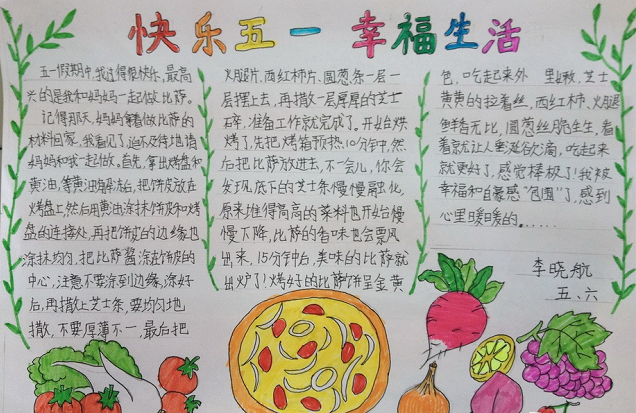 快乐五一 幸福生活
五一假期中,我过得很快乐,最高
兴的是我和妈妈一起做比萨。
记得那天,妈妈拿着做比萨的
材料回家,我看见了迫不及待地请
妈妈和我一起做。首先,拿出烤盘和
黄油,等黄油解冻后,把饼皮放在
烤盘上,然后用黄油涂抹饼皮和烤
盘的连接处,再把饼皮的边缘也
涂抹均匀,把比萨酱涂在饼皮的
中心,注意不要涂到边缘,涂好
后,再撒上芝士条,要均匀地
撒,不要厚薄不一,最后把
火腿片、西红柿片、圆葱条一层一
层摆上去,再撒一层厚厚的芝士
碎,准备工作就完成了。开始烘
烤了,先把烤箱预热10分钟,然
后把比萨放进去,不一会儿,你会
发现,底下的芝士条慢慢融化,
原来堆得高高的菜料也开始慢
慢下降,比萨的香味也会飘
出来,15分钟后,美味的比萨就
出炉了!烤好的比萨饼呈金黄
色,吃起来外 里嫩,芝士
黄黄的拉着丝,西红柿、火腿
鲜香无比,圆葱丝脆生生,看
着就让人垂涎欲滴,吃起来
就更好了,感觉棒极了!我被
幸福和自豪感“包围”了,感到
心里暖暖的……
李晓航
五、六